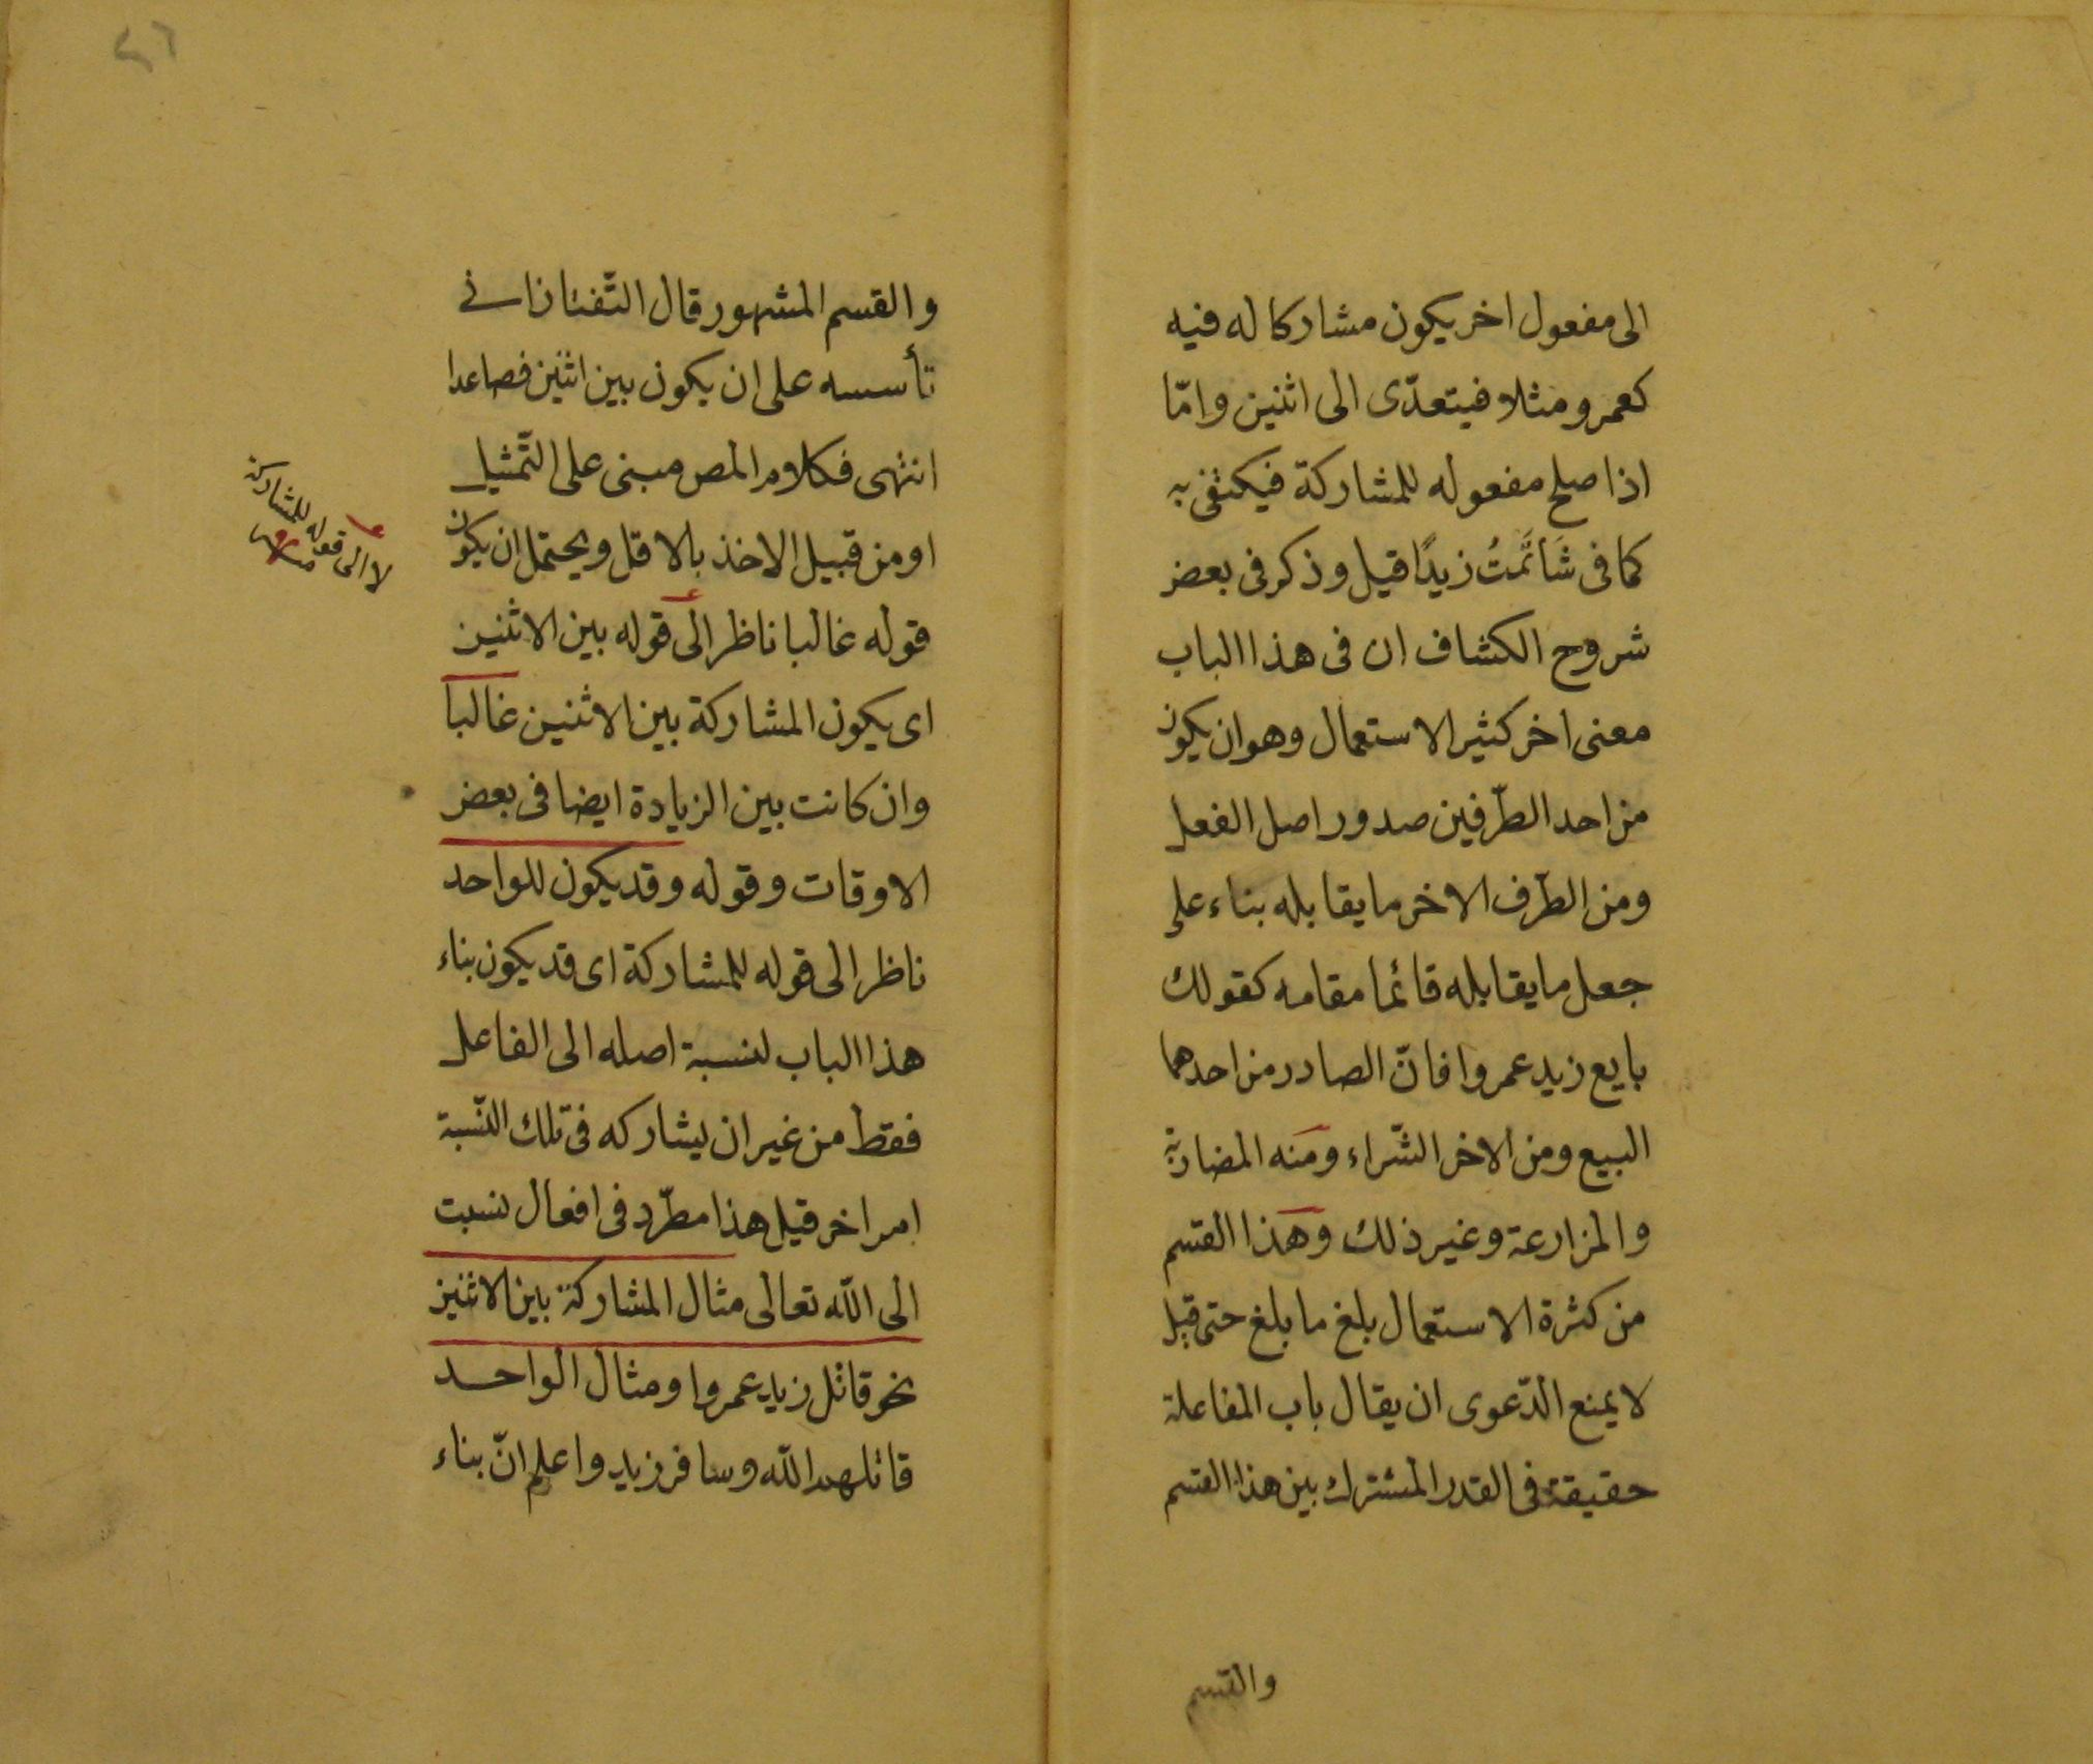 الى مفعول اخر يكون مشاركا له فيه
كعمرو مثلا فيتعدّى الى اثنين وامّا
اذا صلح مفعوله للمشاركة فيكتفى به
كما فى شَاتَمْتُ زيدًا قيل وذكر فى بعض
شروح الكشاف ان فى هذا الباب
معنى اخر كثير الاستعمال وهو ان يكون
من احد الطّرفين صدور اصل الفعل
ومن الطّرف الاخر ما يقابله بناء على
جعل ما يقابله قائما مقامه كقولك
بايع زيد عمروا فانّ الصادر من احدهما
البيع ومن الاخر الشّراء ومنه المضاربة
والمزارعة وغير ذلك وهذا القسم
من كثرة الاستعمال بلغ ما بلغ حتى قيل
لا يمنع الدّعوى ان يقال باب المفاعلة
حقيقة فى القدر المشترك بين هذا القسم
والقسم
٤٦
والقسم المشهور قال التّفتازانى
تأسسه على ان يكون بين اثنين فصاعدا
انتهى فكلام المص مبنى على التّمثيل
او من قبيل الاخذ بالاقل ويحتمل ان يكون
قوله غالبا ناظر الى قوله بين الاثنين
اى يكون المشاركة بين الاثنين غالبا
وان كانت بين الزيادة ايضا فى بعض
الاوقات وقوله وقد يكون للواحد
ناظر الى قوله للمشاركة اى قد يكون بناء
هذا الباب لنسبة اصله الى الفاعل
فقط من غير ان يشاركه فى تلك النّسبة
امر اخر قيل هذا مطّرد فى افعال نسبت
الى اللّه تعالى مثال المشاركة بين الاثنين
نحو قاتل زيد عمروا ومثال الواحد
قاتلهم اللّه وسافر زيد واعلم انّ بناء
لا الى قوله للمشاركة